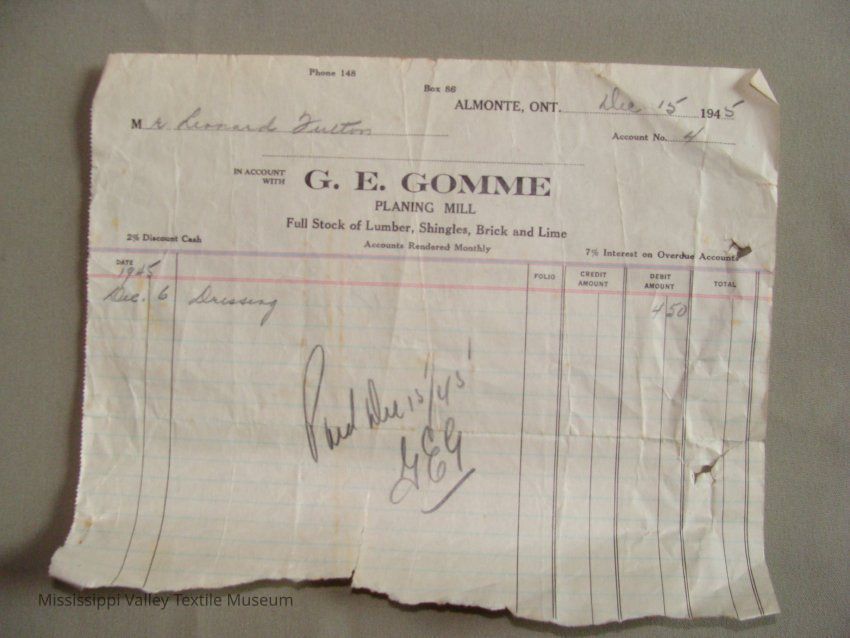 Phone 148
Box 86
ALMONTE, ONT. Dec 15 1945
Mr. Leonard Fulton
Account No. 4
IN ACCOUNT WITH G. E. GOMME
PLANING MILL
Full Stock of Lumber, Shingles, Brick and Lime
2% Discount Cash Accounts Rendered Monthly 7% Interest on Overdue Accounts
DATE FOLIO CREDIT AMOUNT DEBIT AMOUNT TOTAL
1945
Dec. 6 Dressing 4 50
Paid Dec 15/45
GEG
Mississippi Valley Textile Museum